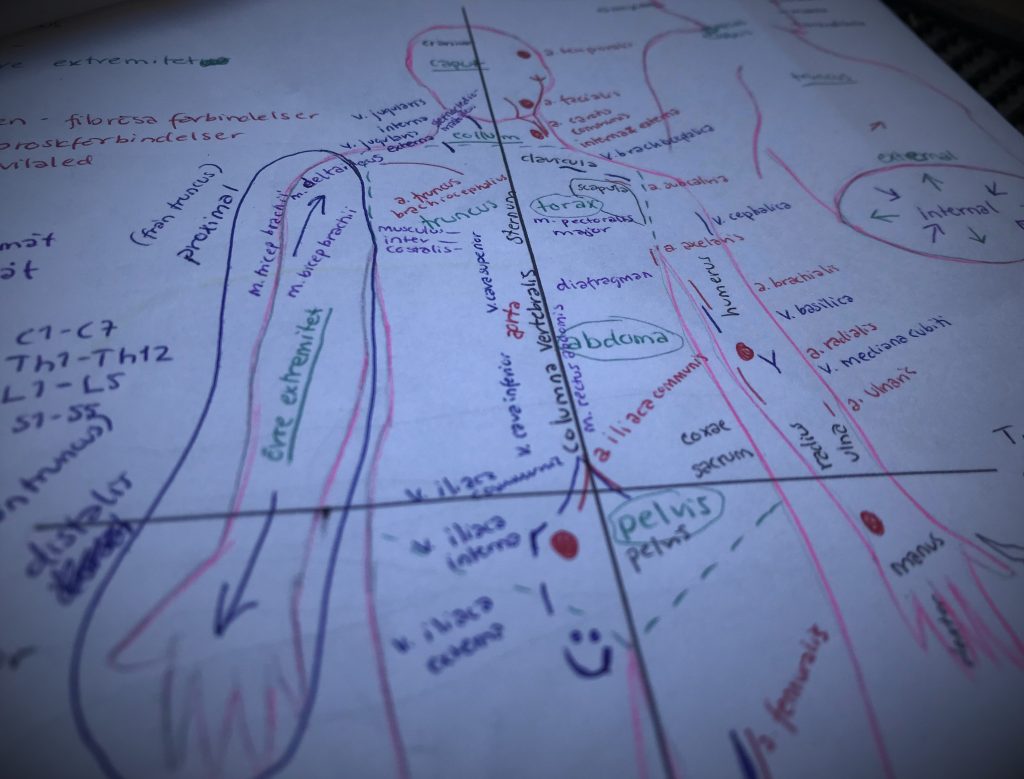 extremitet
en - fibrösa förbindelser
broskförbindelser
(från truncus)
proximal
C1-C7
Th1-Th12
L1-L5
S1-S5
truncus)
distalis
m. tricep brachii
m. bicep brachii
m. delta
övre extremitet
cranium
caput
a. temporalis
a. facialis
v. jugularis
interna
v. jugularis
externa
collum
a. carotis
communis
interna & externa
v. brachiocephalica
clavicula
scapula
a. truncus
brachiocephalicus
truncus
musculus
inter
costalis
sternum
torax
m. pectoralis
major
a. subcalvia
v. cephalica
a. axelaris
humerus
diafragman
v. cava superior
aorta
columna vertebralis
m. rectus abdomis
abdoma
a. brachialis
v. basilica
a. radialis
v. mediana cubiti
a. ulnaris
ulna
radius
v. cava inferior
a iliaca communis
coxae
sacrum
v. iliaca
communis
v. iliaca
interna
pelvis
pelvis
v. iliaca
externa
manus
a femuralis
truncus
external
Internal